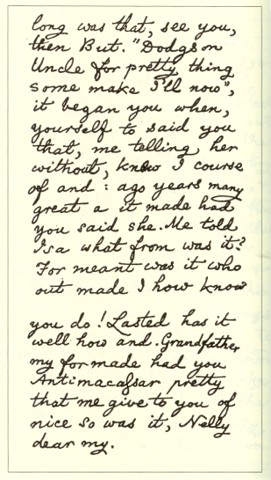 long was that, see you,
then But. "Dodgson
Uncle for pretty thing
some make I'll now",
it began you when,
yourself to said you
that, me telling her
without, knew I course
of and : ago years many
great a it made had
you said she. Me told
Isa what from was it?
For meant was it who
out made I how know
you do! Lasted has it
well how and. Grandfather
my for made had you
Antimacassar pretty
that me give to you of
nice so was it, Nelly
dear my.